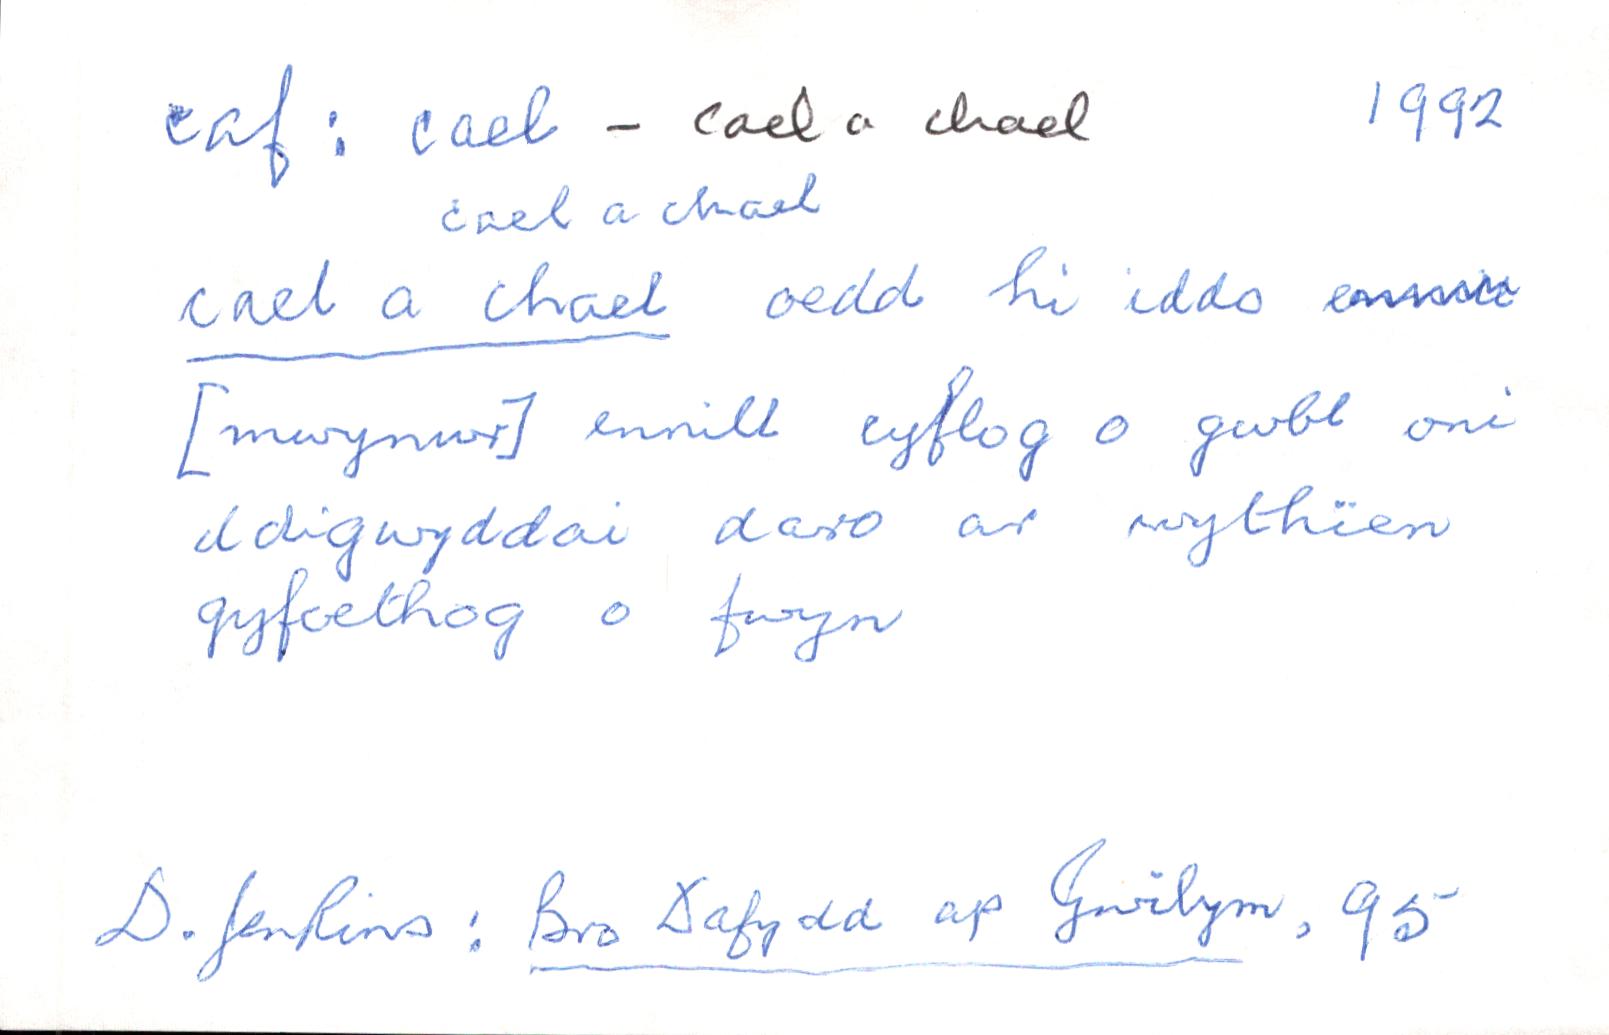 caf: cael - cael a chael 1992
cael a chael
cael a chael oedd hi iddo
[mwynwr] ennill cyflog o gwbl oni
ddigwyddai daro ar wythïen
gyfoethog o fwyn
D. Jenkins: Bro Dafydd ap Gwilym, 95